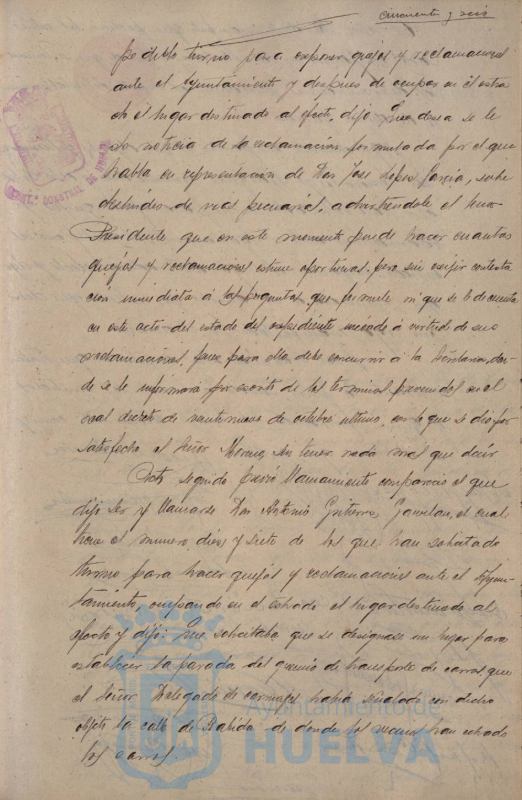 cincuenta y seis
pedido turno para exponer quejas y reclamaciones
ante el Ayuntamiento y despues de ocupar en el estra
do el lugar destinado al efecto, dijo: Que desea se le
dé noticia de la reclamación formulada por el que
habla en representación de Don José López García, sobre
deslindes de vias pecuarias, advirtiendole el Señor
Presidente que en este momento puede hacer cuantas
quejas y reclamaciones estime oportunas, pero sin exigir contesta
cion inmediata á las preguntas que formule ni que se le de cuenta
en este acto del estado del expediente incoado á virtud de sus
reclamaciones, pues para ello debe concurrir á la Secretaria, don
de se le informará por escrito de los terminos prevenidos en el
real decreto de veintinueve de octubre ultimo, con lo que se dio por
satisfecho el Señor Moreno, sin tener nada mas que decir
Acto seguido previo llamamiento compareció el que
dijo ser y llamarse Don Antonio Gutierrez, el cual
hace el numero diez y siete de los que han solicitado
turno para hacer quejas y reclamaciones ante el Ayun-
tamiento, ocupando en el estrado el lugar destinado al
efecto y dijo: Que solicitaba que se designase un lugar para
establecer la parada del gremio de transporte de carros que
el Señor Delegado de carruajes habia señalado con dicho
objeto la calle de Rabida de donde los vecinos han echado
los carros.
Ayuntamiento de
HUELVA